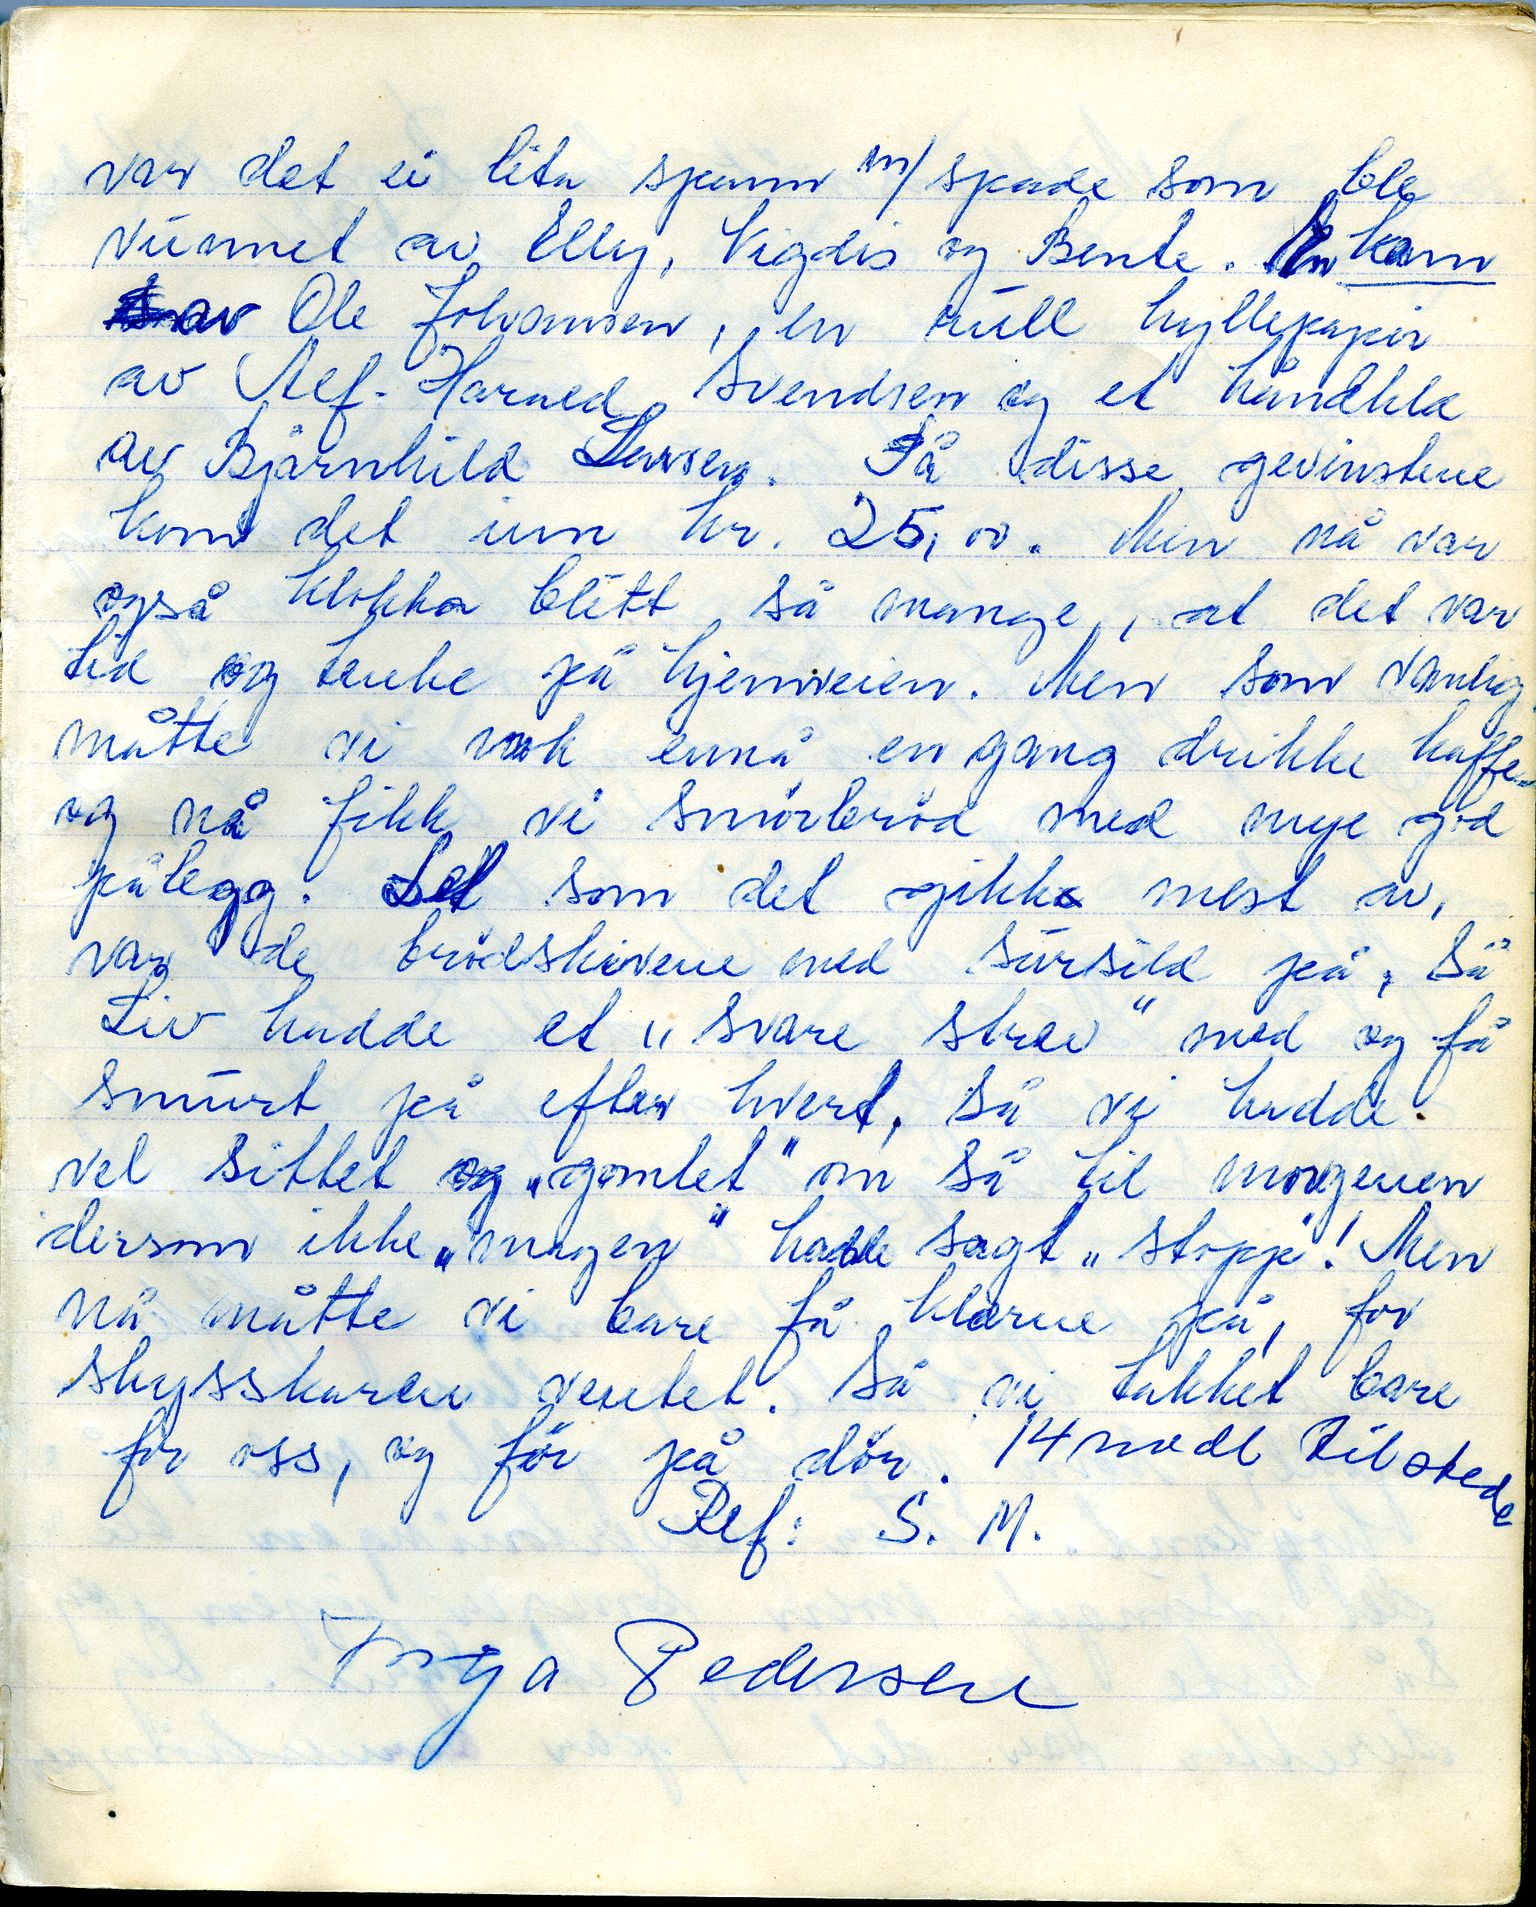 var det ei lita spann m/ spade som ble
vunnet av Elly, Vigdis og Bente. En kam
av Ole Johansen, en rull hyllepapir
av Alf-Harald Svendsen og et håndkle
av Bjørnhild Larsen. På disse gevinstene
kom det inn kr. 25,00. Men nå var
også klokka blitt så mange, at det var
tid og tenke på hjemveien. Men som vanlig
måtte vi nok ennå en gang drikke kaffe
og nå fikk vi smørbrød med mye god
pålegg. Det som det gikk mest av,
var de brødskivene med sursild på, så
Liv hadde et „svare strev" med og få
smurt på efter hvert, så vi hadde
vel sittet og „gomlet" om så til morgenen
dersom ikke „magen" hadde sagt „stopp"! Men
nå måtte vi bare få klærne på, for
skysskaren ventet. Så vi takket bare
for oss, og fór på dør. 14 medl tilstede
Ref: S. M.
Inga Pedersen